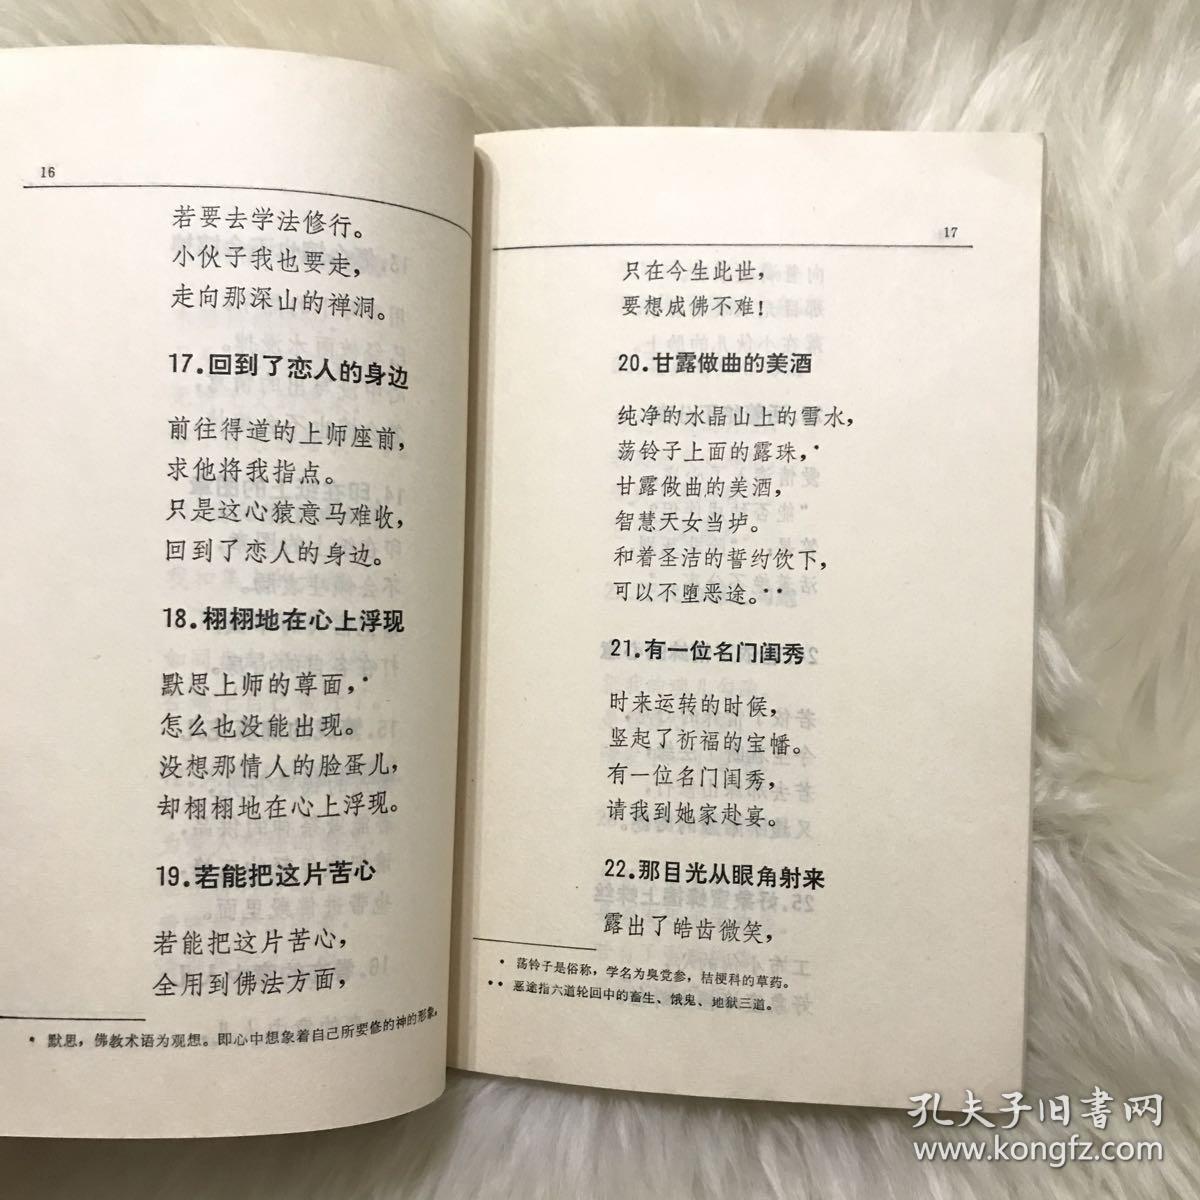 16
若要去学法修行。
小伙子我也要走，
走向那深山的禅洞。
17.回到了恋人的身边
前往得道的上师座前，
求他将我指点。
只是这心猿意马难收，
回到了恋人的身边。
18.栩栩地在心上浮现
默思上师的尊面，•
怎么也没能出现。
没想那情人的脸蛋儿，
却栩栩地在心上浮现。
19.若能把这片苦心
若能把这片苦心，
全用到佛法方面，
• 默思，佛教术语为观想。即心中想象着自己所要修的神的形象。
17
只在今生此世，
要想成佛不难！
20.甘露做曲的美酒
纯净的水晶山上的雪水，
荡铃子上面的露珠，•
甘露做曲的美酒，
智慧天女当垆。
和着圣洁的誓约饮下，
可以不堕恶途。••
21.有一位名门闺秀
时来运转的时候，
竖起了祈福的宝幡。
有一位名门闺秀，
请我到她家赴宴。
22.那目光从眼角射来
露出了皓齿微笑，
• 荡铃子是俗称，学名为臭党参，桔梗科的草药。
•• 恶途指六道轮回中的畜生、饿鬼、地狱三道。
孔夫子旧书网
www.kongfz.com